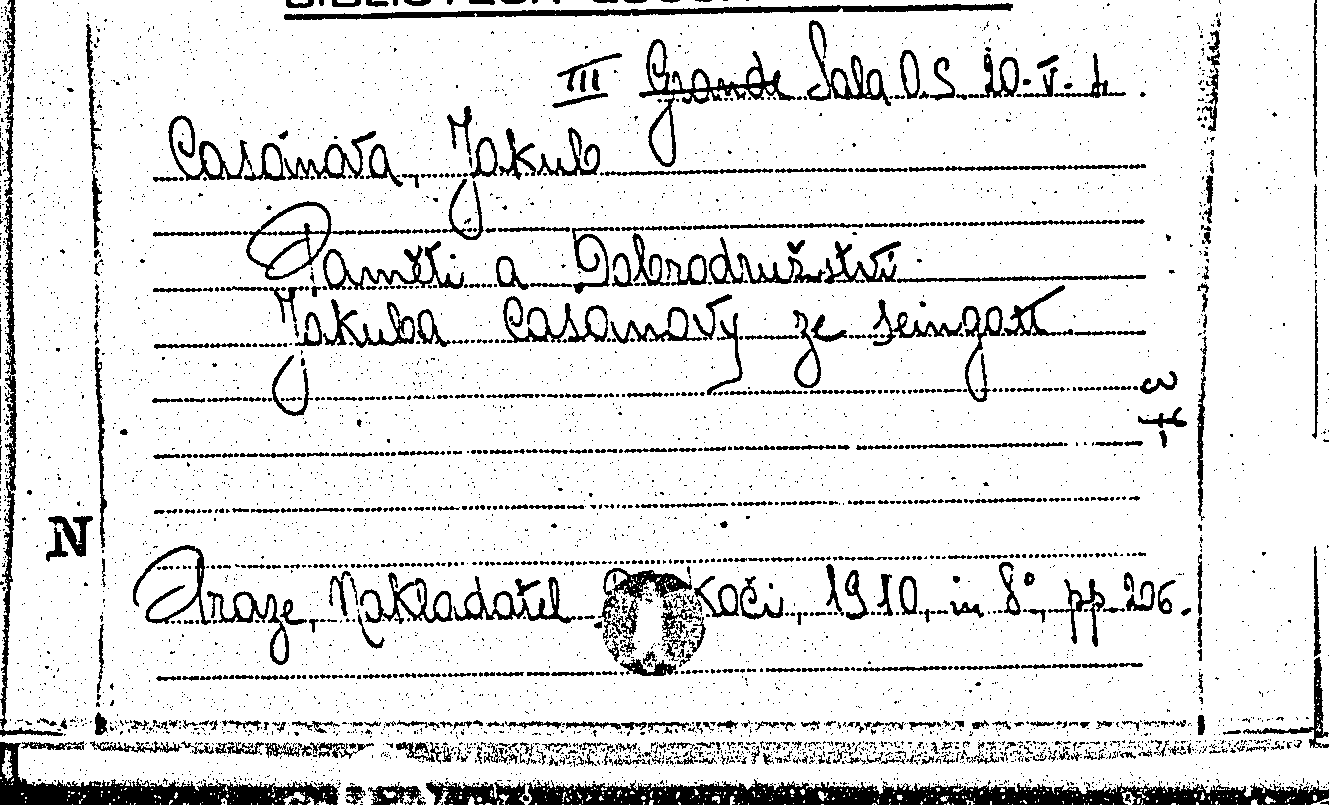 III Grande Sala O.S 20-V-4.
Casanova, Jakub
Paměti a Dobrodružstvi
Jakuba Casanovy ze seingatt
N
Praze, Nakladatel Kočí, 1910, in 8°, pp. 206.